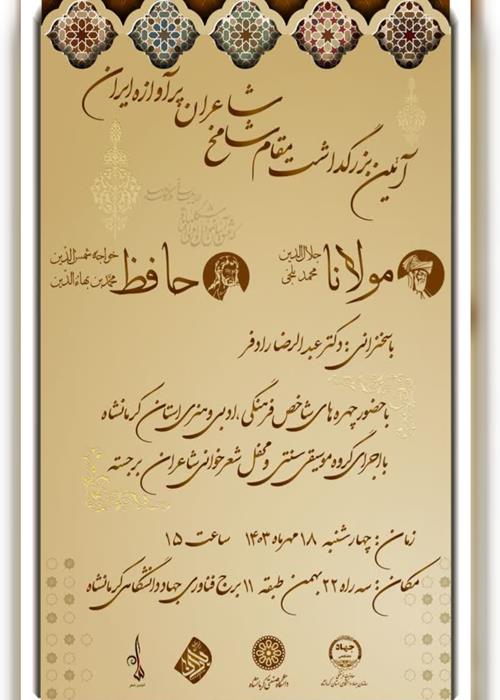 آئین بزرگداشت مقام شامخ
شاعران پرآوازه ایران
مولانا
جلال الدین
محمد بلخی
حافظ
خواجه شمس الدین
محمد بن بهاء الدین
با سخنرانی: دکتر عبدالرضا رادفر
با حضور چهره های شاخص فرهنگی، ادبی و هنری استان کرمانشاه
با اجرای گروه موسیقی سنتی و محفل شعرخوانی شاعران برجسته
زمان: چهارشنبه ۱۸ مهرماه ۱۴۰۳ ساعت ۱۵
مکان: سه راه ۲۲ بهمن طبقه ۱۱ برج فناوری جهاد دانشگاهی کرمانشاه
جهاد
دانشگاه صنعتی کرمانشاه